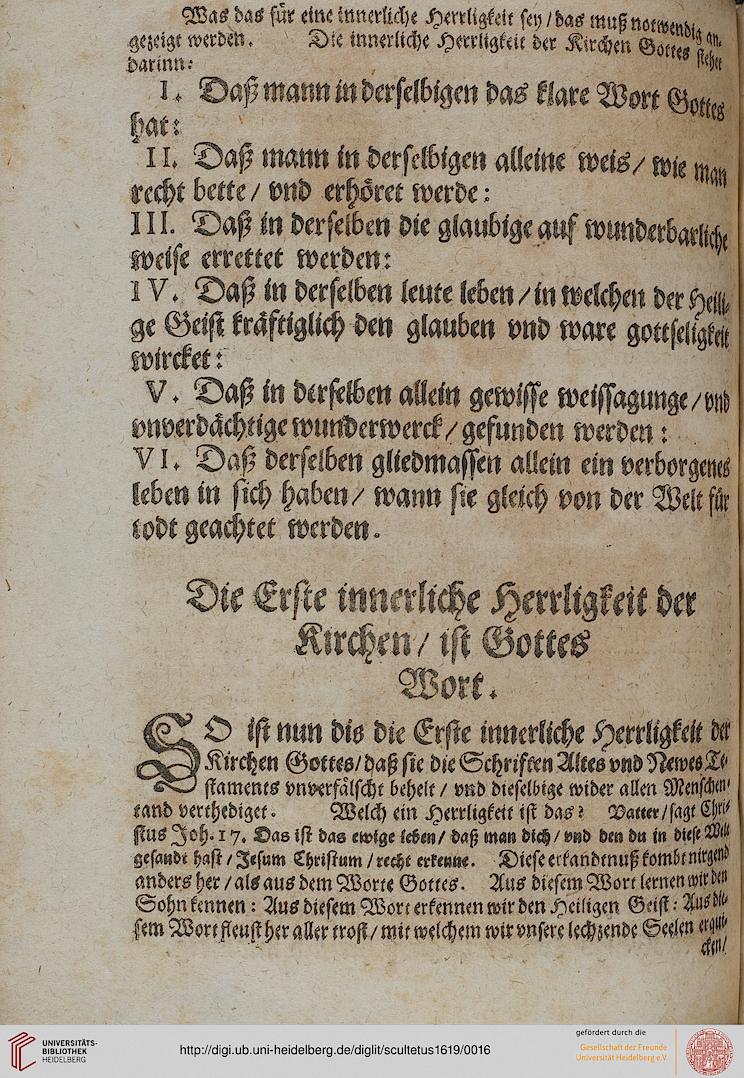 Was das für eine innerliche Herrligkeit sey / das muß notwendig an-
gezeigt werden. Die innerliche Herrligkeit der Kirchen Gottes stehet
darinn:
I. Daß mann in derselbigen das klare Wort Gottes
hat:
II. Daß mann in derselbigen alleine weis / wie man
recht bette / vnd erhöret werde:
III. Daß in derselben die glaubige auf wunderbarliche
weise errettet werden:
IV. Daß in derselben leute leben / in welchen der Heili-
ge Geist kräftiglich den glauben vnd ware gottseligkeit
wircket:
V. Daß in derselben allein gewisse weissagunge / vnd
vnverdächtige wunderwerck / gefunden werden:
VI. Daß derselben gliedmassen allein ein verborgenes
leben in sich haben / wann sie gleich von der Welt für
todt geachtet werden.
Die Erste innerliche Herrligkeit der
Kirchen / ist Gottes
Wort.
SO ist nun dis die Erste innerliche Herrligkeit der
Kirchen Gottes / daß sie die Schriften Altes vnd Newes Te-
staments vnverfälscht behelt / vnd dieselbige wider allen Menschen-
tand verthediget. Welch ein Herrligkeit ist das? Vatter / sagt Chri-
stus Joh. 17. Das ist das ewige leben / daß man dich / vnd den du in diese Welt
gesandt hast / Jesum Christum / recht erkenne. Diese erkandtnuß kombt nirgend
anders her / als aus dem Worte Gottes. Aus diesem Wort lernen wir den
Sohn kennen: Aus diesem Wort erkennen wir den Heiligen Geist: Aus die-
sem Wort fleust her aller trost / mit welchem wir vnsere lechzende Seelen erqui-
cken /
UNIVERSITÄTS-
BIBLIOTHEK
HEIDELBERG
http://digi.ub.uni-heidelberg.de/diglit/scultetus1619/0016
gefördert durch die
Gesellschaft der Freunde
Universität Heidelberg e.V.